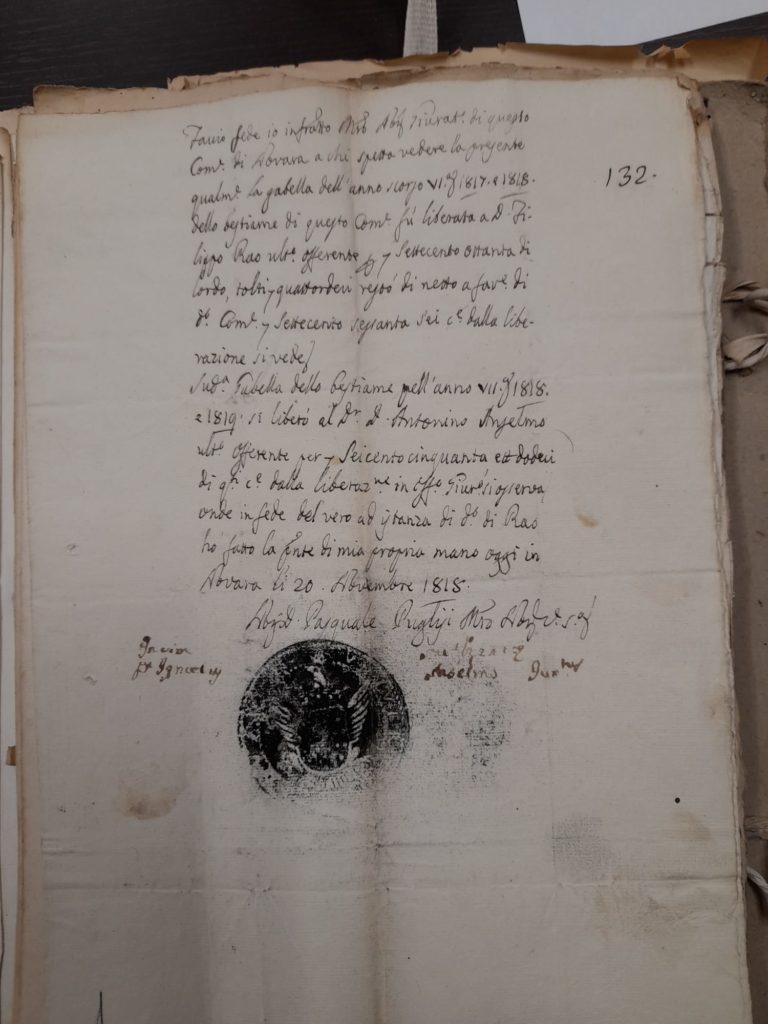 Faccio fede io infratto Mro Noro Giurat.º di questo
Com.e di Novara a chi spetta vedere la presente
qualm.e la gabella dell'anno scorso VI. 1817. e 1818.
dello bestiame di questo Com.e fù liberata a D. Fi-
lippo Rao ult.º offerente Settecento ottanta di
lordo, tolti quattordeci restò di netto a fav.e di
d.º Com.e Settecento sessanta sei c.e dalla libe-
razione si vede
Sud.a Gabella dello bestiame pell'anno VII. 1818.
e 1819. si liberò al Dr. D. Antonino Anselmo
ult.º offerente per Seicento cinquanta dodeci
di c.e dalla liberaz.ne in Giur.º si osserva
onde in fede del vero ad istanza di d.º di Rao
hò fatto la pnte di mia propria mano oggi in
Novara li 20. Novembre 1818.
Pasquale Puglisi Mro
132.
Anselmo